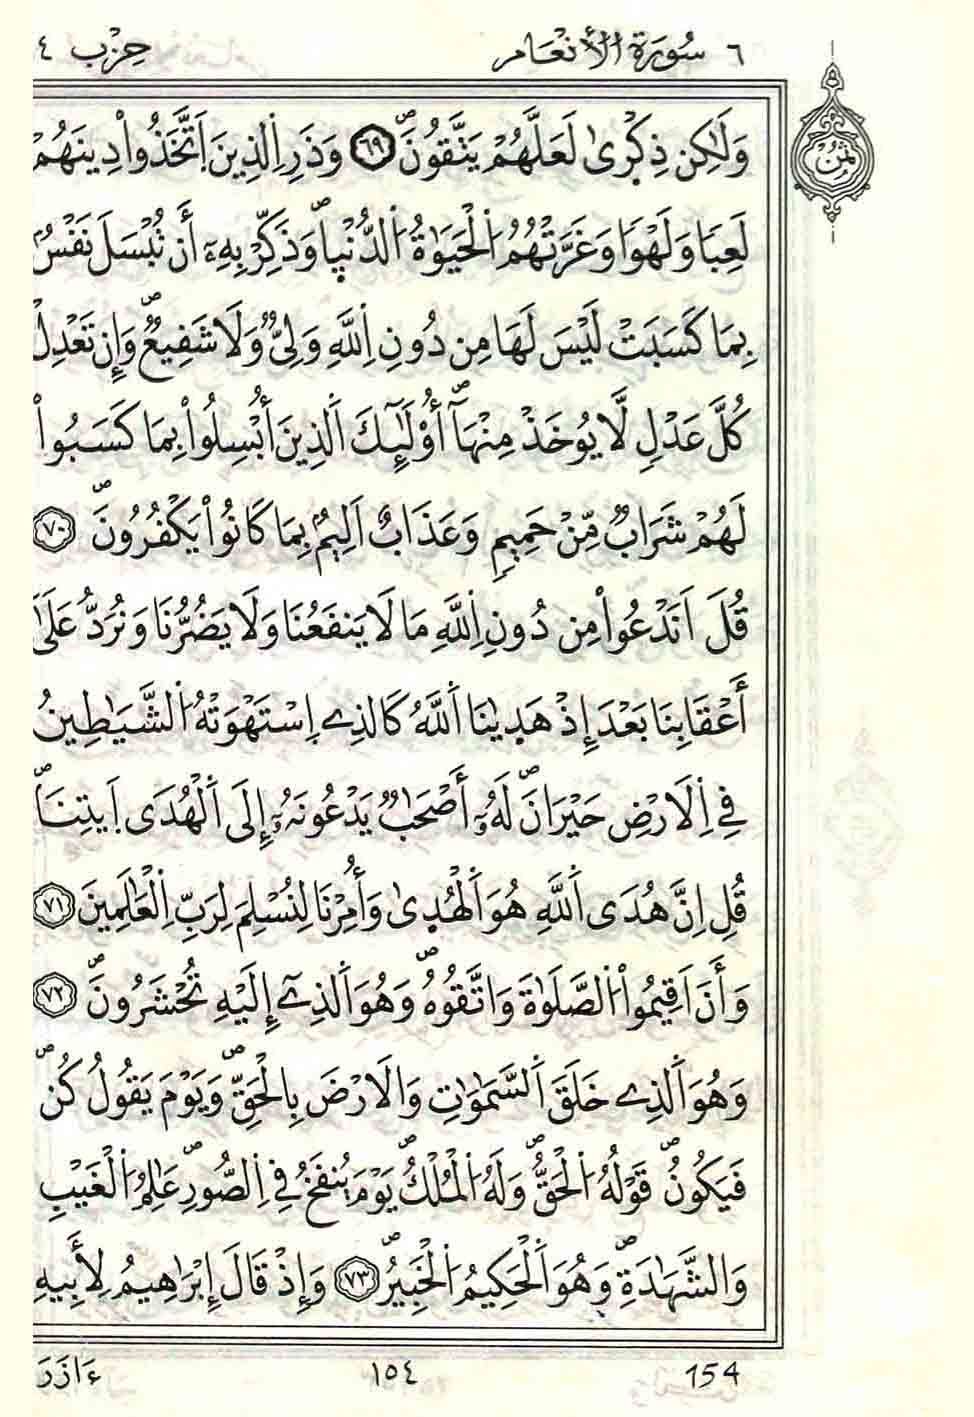 ٦ سُورَةُ الأَنْعَام حِزْب ٤
ثُمُنُ
وَلَٰكِن ذِكْرٜىٰ لَعَلَّهُمْ يَتَّقُونَۖ ٦٩ وَذَرِ اِ۬لذِينَ اَ۪تَّخَذُواْ دِينَهُمْ
لَعِباٗ وَلَهْواٗ وَغَرَّتْهُمُ اُ۬لْحَيَوٰةُ اُ۬لدُّنْيٜاۖ وَذَكِّرْ بِهِۦٓ أَن تُبْسَلَ نَفْسُۢ
بِمَا كَسَبَتْ لَيْسَ لَهَا مِن دُونِ اِ۬للَّهِ وَلِيّٞ وَلَا شَفِيعٞۖ وَإِن تَعْدِلْ
كُلَّ عَدْلٖ لَّا يُوخَذْ مِنْهَآۖ أُوْلَٰٓئِكَ اَ۬لذِينَ أُبْسِلُواْ بِمَا كَسَبُواْ
لَهُمْ شَرَابٞ مِّنْ حَمِيمٖ وَعَذَابٌ اَلِيمُۢ بِمَا كَانُواْ يَكْفُرُونَۖ ٧٠
قُلَ اَنَدْعُواْ مِن دُونِ اِ۬للَّهِ مَا لَا يَنفَعُنَا وَلَا يَضُرُّنَا وَنُرَدُّ عَلَىٰٓ
أَعْقَابِنَا بَعْدَ إِذْ هَدٜىٰنَا اَ۬للَّهُ كَالذِے اِ۪سْتَهْوَتْهُ اُ۬لشَّيَٰطِينُ
فِے اِ۬لَارْضِ حَيْرَانَۖ لَهُۥٓ أَصْحَٰبٞ يَدْعُونَهُۥٓ إِلَى اَ۬لْهُدَى اَ۪يتِنَاۖ
قُلِ اِنَّ هُدَى اَ۬للَّهِ هُوَ اَ۬لْهُدٜىٰ وَأُمِرْنَا لِنُسْلِمَ لِرَبِّ اِ۬لْعَٰلَمِينَ ٧١
وَأَنَ اَقِيمُواْ اُ۬لصَّلَوٰةَ وَاتَّقُوهُۖ وَهُوَ اَ۬لذِےٓ إِلَيْهِ تُحْشَرُونَۖ ٧٢
وَهُوَ اَ۬لذِے خَلَقَ اَ۬لسَّمَٰوَٰتِ وَالَارْضَ بِالْحَقِّۖ وَيَوْمَ يَقُولُ كُنۖ
فَيَكُونُۖ قَوْلُهُ اُ۬لْحَقُّۖ وَلَهُ اُ۬لْمُلْكُۖ يَوْمَ يُنفَخُ فِے اِ۬لصُّورِۖ عَٰلِمُ اُ۬لْغَيْبِ
وَالشَّهَٰدَةِۖ وَهُوَ اَ۬لْحَكِيمُ اُ۬لْخَبِيرُۖ ٧٣ وَإِذْ قَالَ إِبْرَٰهِيمُ لِأَبِيهِ
154 ١٥٤ ءَازَرَ